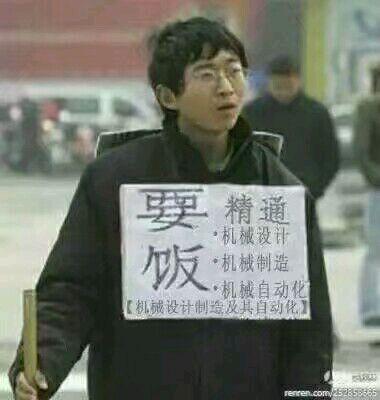 要饭
精通
·机械设计
·机械制造
·机械自动化
【机械设计制造及其自动化】